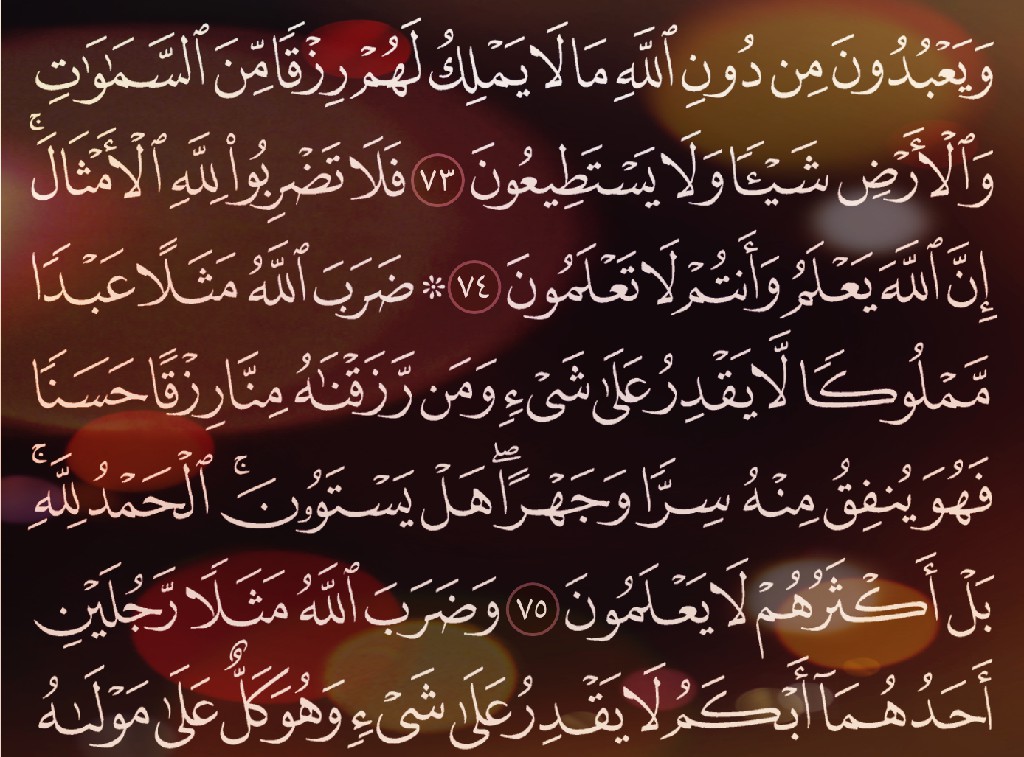 وَيَعۡبُدُونَ مِن دُونِ ٱللَّهِ مَا لَا يَمۡلِكُ لَهُمۡ رِزۡقٗا مِّنَ ٱلسَّمَٰوَٰتِ
وَٱلۡأَرۡضِ شَيۡـٔٗا وَلَا يَسۡتَطِيعُونَ ٧٣ فَلَا تَضۡرِبُواْ لِلَّهِ ٱلۡأَمۡثَالَۚ
إِنَّ ٱللَّهَ يَعۡلَمُ وَأَنتُمۡ لَا تَعۡلَمُونَ ٧٤ ۞ ضَرَبَ ٱللَّهُ مَثَلًا عَبۡدٗا
مَّمۡلُوكٗا لَّا يَقۡدِرُ عَلَىٰ شَيۡءٖ وَمَن رَّزَقۡنَٰهُ مِنَّا رِزۡقًا حَسَنٗا
فَهُوَ يُنفِقُ مِنۡهُ سِرّٗا وَجَهۡرًاۖ هَلۡ يَسۡتَوُۥنَۚ ٱلۡحَمۡدُ لِلَّهِۚ
بَلۡ أَكۡثَرُهُمۡ لَا يَعۡلَمُونَ ٧٥ وَضَرَبَ ٱللَّهُ مَثَلٗا رَّجُلَيۡنِ
أَحَدُهُمَآ أَبۡكَمُ لَا يَقۡدِرُ عَلَىٰ شَيۡءٖ وَهُوَ كَلٌّ عَلَىٰ مَوۡلَىٰهُ